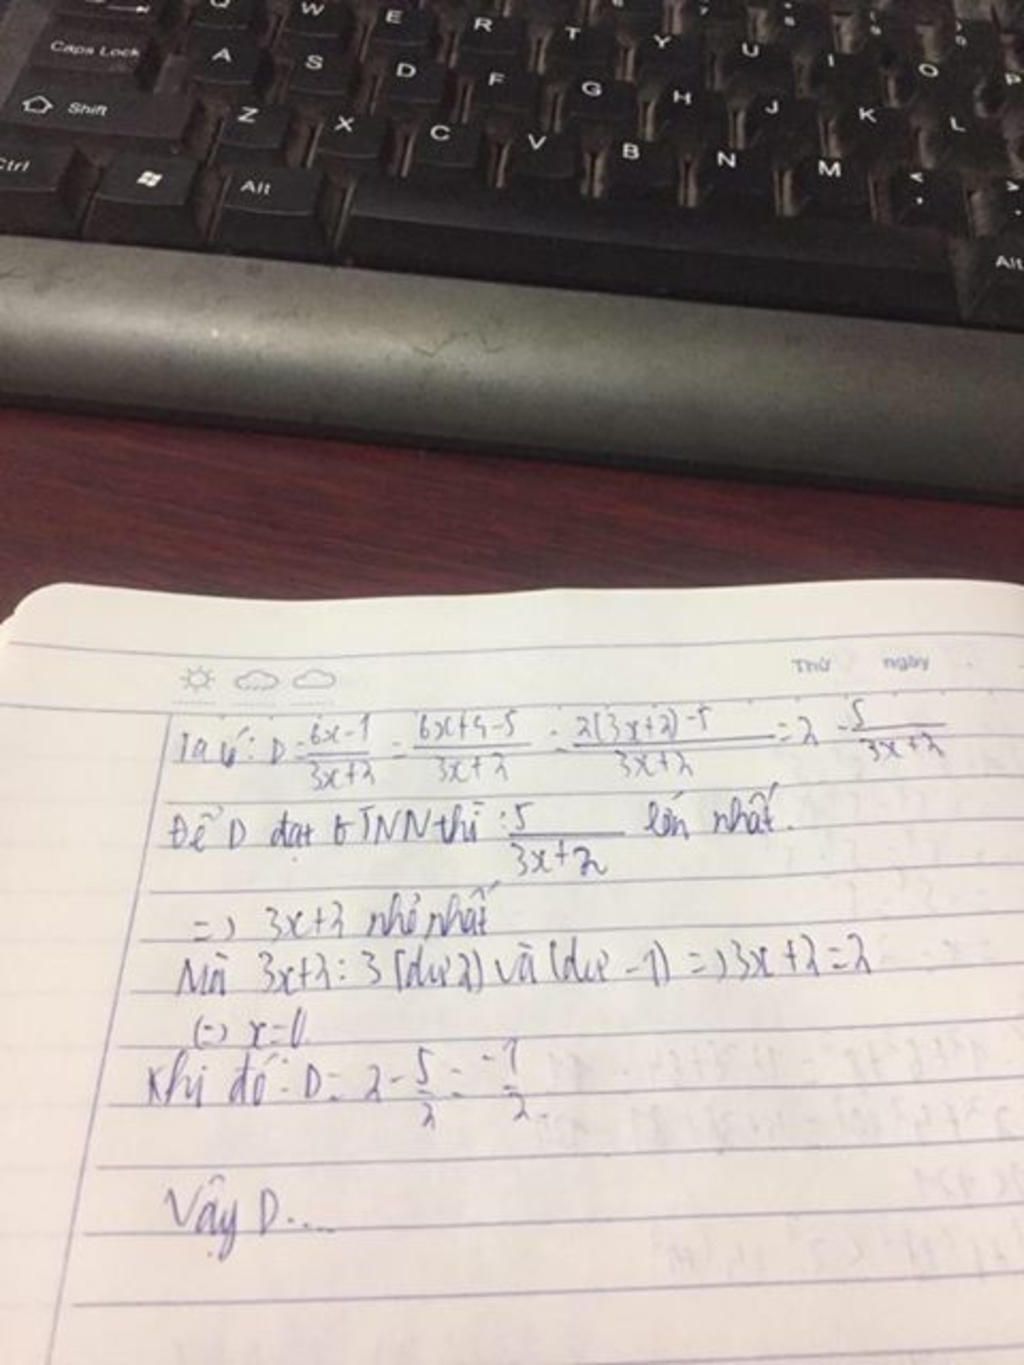 W E R T Y U I O P
Caps Lock A S D F G H J K L
Shift Z X C V B N M < >
Ctrl Alt Alt
Thứ ngày
Ta có: D = \frac{6x-1}{3x+2} = \frac{6x+4-5}{3x+2} = \frac{2(3x+2)-5}{3x+2} = 2 - \frac{5}{3x+2}
Để D đạt GTNN thì: \frac{5}{3x+2} lớn nhất.
=> 3x+2 nhỏ nhất
Mà 3x+2 : 3 (dư 2) và (dư -1) => 3x+2=2
(=) x=0
Khi đó: D = 2 - \frac{5}{2} = \frac{-1}{2}.
Vậy D....